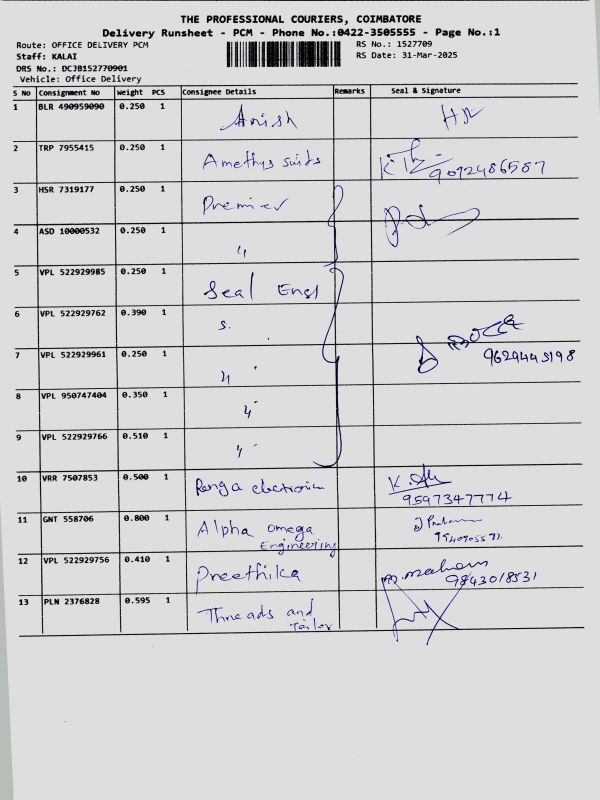 THE PROFESSIONAL COURIERS, COIMBATORE
Delivery Runsheet - PCM - Phone No.:0422-3505555 - Page No.:1
Route: OFFICE DELIVERY PCM
Staff: KALAI
DRS No.: DCJB152770901
Vehicle: Office Delivery
RS No.: 1527709
RS Date: 31-Mar-2025
S No Consignment No Weight PCS Consignee Details Remarks Seal & Signature
1 BLR 490959090 0.250 1 Anish
2 TRP 7955415 0.250 1 Amethys suits
3 HSR 7319177 0.250 1 Premier
4 ASD 10000532 0.250 1 "
5 VPL 522929985 0.250 1 Seal Engs
6 VPL 522929762 0.390 1 S.
7 VPL 522929961 0.250 1 " 9629445198
8 VPL 950747404 0.350 1 "
9 VPL 522929766 0.510 1 "
10 VRR 7507853 0.500 1 Renga electronics 9597347774
11 GNT 558706 0.800 1 Alpha omega
Engineering
12 VPL 522929756 0.410 1 Preethika 9843018531
13 PLN 2376828 0.595 1 Threads and
Tailor